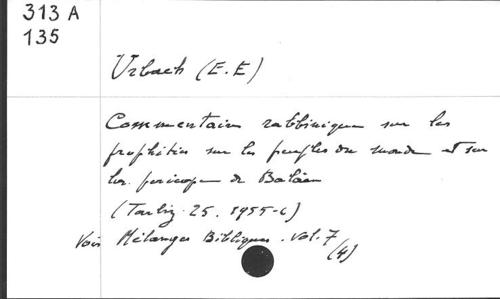 313 A
135
Urbach (E.E)
Commentaires rabbiniques sur les
prophéties sur les peuples du monde et sur
les péricopes de Balaam
(Tarbiz. 25. 1955-6)
Voir Mélanges Bibliques. vol. 7
(4)